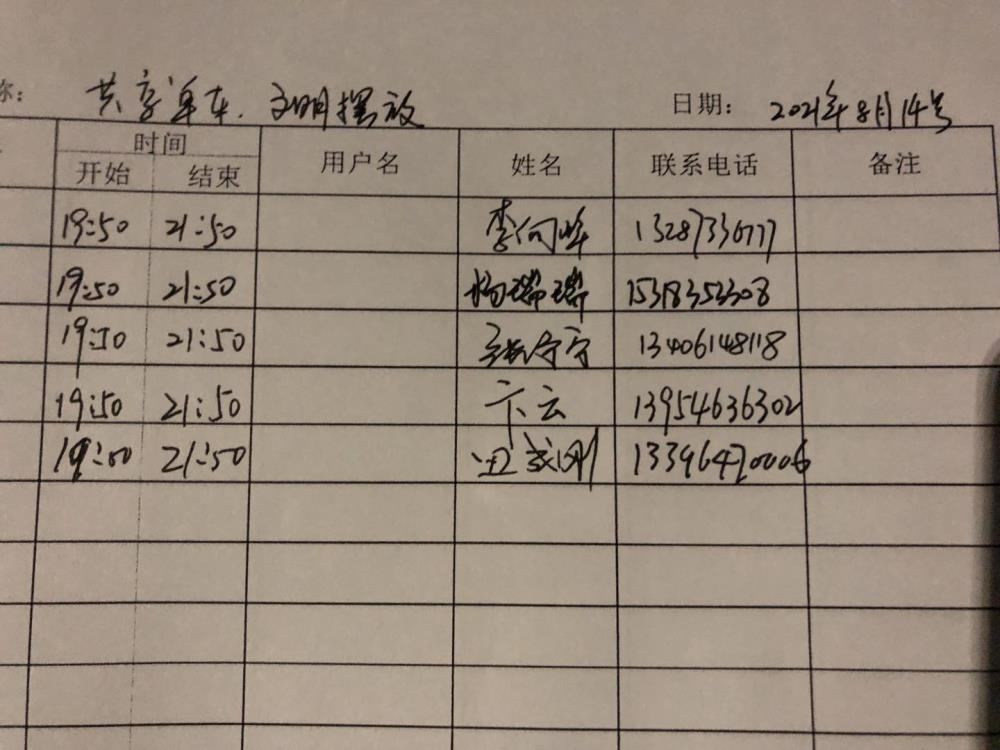 称: 共享单车.文明摆放 日期: 2021年8月14号
时间 用户名 姓名 联系电话 备注
开始 结束
19:50 21:50 李向峰 13287336777
19:50 21:50 杨瑞瑞 15318353308
19:50 21:50 张宁宁 13406148118
19:50 21:50 卞云 13954636302
19:50 21:50 刚 13396470006